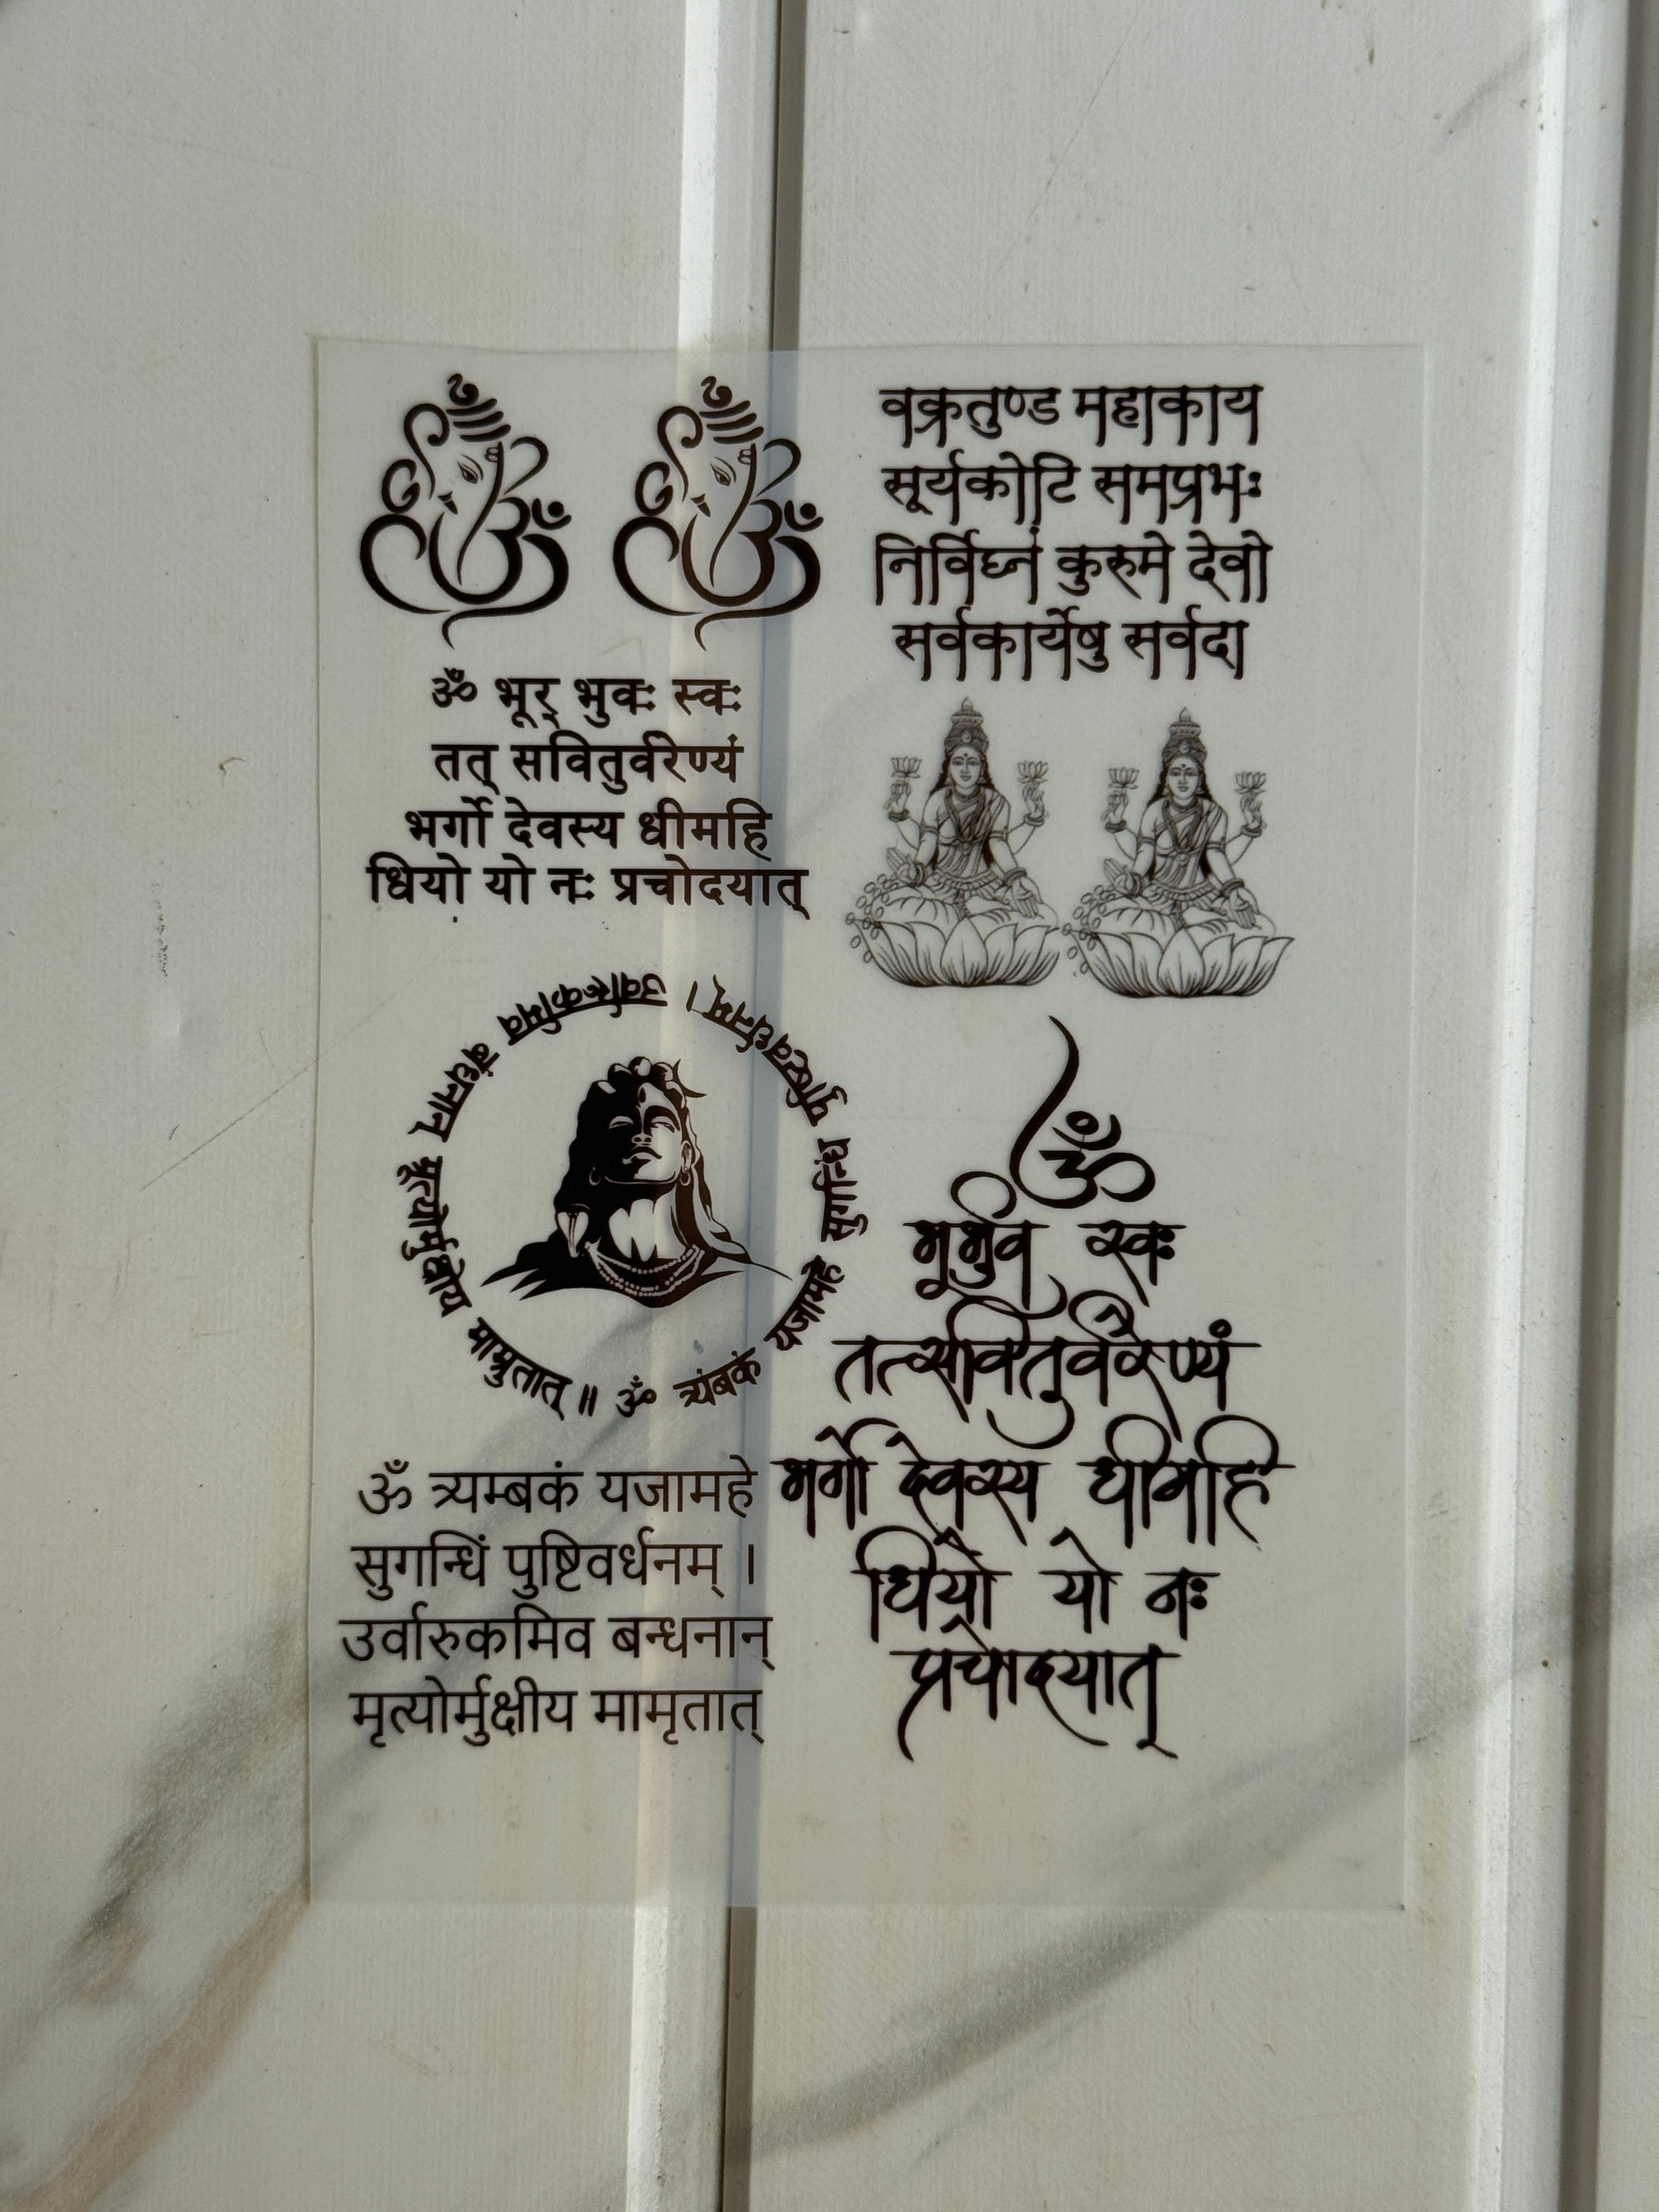 वक्रतुण्ड महाकाय
सूर्यकोटि समप्रभः
निर्विघ्नं कुरुमे देवो
सर्वकार्येषु सर्वदा
ॐ भूर् भुवः स्वः
तत् सवितुर्वरेण्यं
भर्गो देवस्य धीमहि
धियो यो नः प्रचोदयात्
ॐ त्र्यंबकं यजामहे सुगन्धिं पुष्टिवर्धनम् । उर्वारुकमिव बंधनान् मृत्योर्मुक्षीय माम्रुतात् ॥
ॐ
भूर्भुव स्वः
तत्सवितुर्वरेण्यं
भर्गो देवस्य धीमहि
धियो यो नः
प्रचोदयात्
ॐ त्र्यम्बकं यजामहे
सुगन्धिं पुष्टिवर्धनम् ।
उर्वारुकमिव बन्धनान्
मृत्योर्मुक्षीय मामृतात्